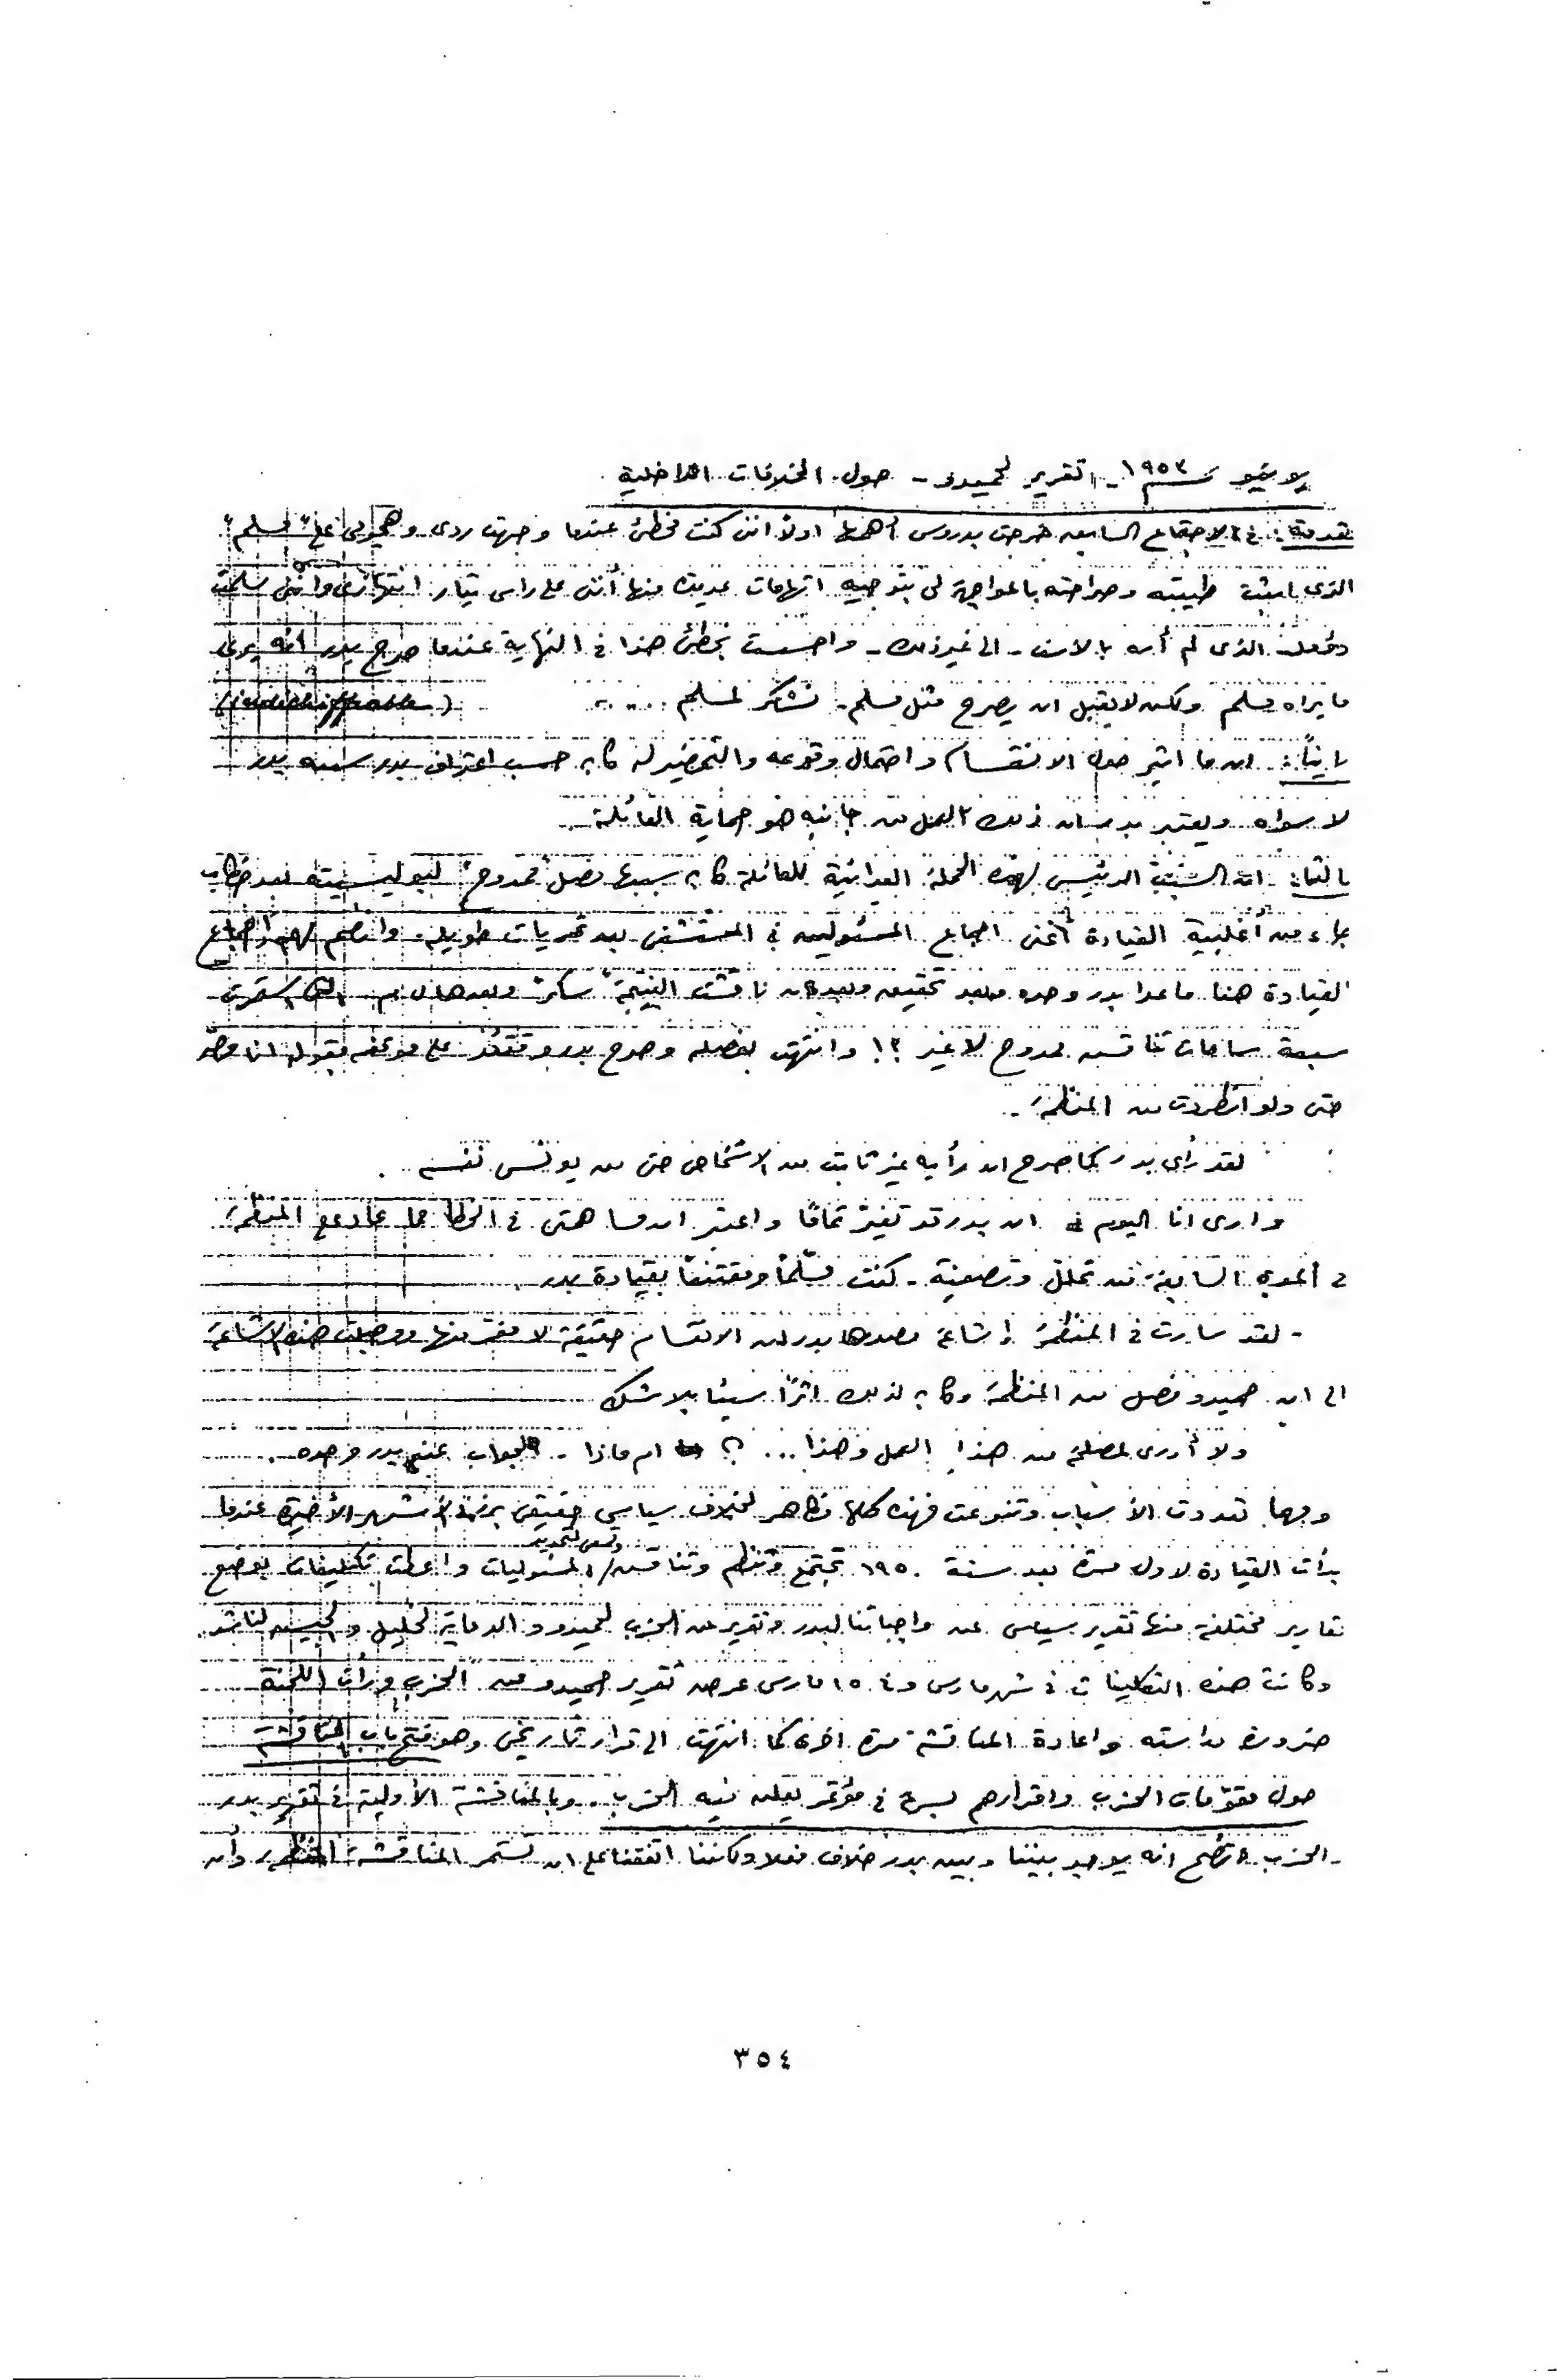 يونيو سنة ١٩٥٣ - تقرير لحميدو - حول الخلافات الداخلية
مقدمة: في الاجتماع السابق خرجت بدروس أهمها اولاً انني كنت مخطئ عندما وجهت ردي وهجومي على "مسلم"
الذي طيبته وصراحته بالمواجهة لي بتوجيه اتهامات عديدة منها أنني على راس تيار انتهازي وانني
الذي لم أره بالامس - الى غير ذلك - واحسست بخطئ هذا في النهاية عندما صرح بدر انه يرى
ما يراه مسلم ولكن لا يقبل ان يصرح مثل مسلم - نشكر لمسلم .....
ثانياً: ان ما اثير حول الانقسام واحتمال وقوعه والتحضير له كان حسب اعتراف بدر سببه بدر
لا سواه ويعتبر بدر ان ذلك العمل من جانبه هو حماية العائلة -
ثالثا: ان السبب الرئيسي لهذه الحملة العدائية للعائلة كان سببها فصل "ممدوح" لبوليسيته بعد خطاب
جاء من أغلبية القيادة أعني اجماع المسئولين في المستشفى بعد تحريات طويلة - وانضم لهم اجماع
القيادة هنا ماعدا بدر وحده وبعد تحقيق وبعد ان ناقشت "سكر" وبعدها استمرت
سبعة ساعات تناقش ممدوح لا غير ؟! وانتهت بفصله وصرح بدر على موقفه بقوله انا مصر
حتى ولو انطردت من المنظمة -
لقد رأى بدر كما صرح ان رأيه غير ثابت من الاشخاص حتى من يونس نفسه .
وارى انا اليوم ان بدر قد تغير تماما واعتبر ان مساهمتي في الخطأ المنظمة
السابق من تحلل وتصفية - كنت مسلّماً ومقتنعاً بقيادة بدر
- لقد سارت في المنظمة إشاعة مصدرها بدر ان الانقسام حقيقة لا مفر منها ووصلت هذه الاشاعة
الى ان حميدو فصل من المنظمة وكان لذلك اثراً سيئا بلا شك
ولا أدري لمصلحة من هذا العمل وهذا ... ؟ ام ماذا - الجواب عند بدر وحده .
ومهما تعددت الأسباب وتنوعت فهذه كلها مظاهر لخلاف سياسي حقيقي الأشهر الأخيرة عندما
بدأت القيادة لاول مرة بعد سنة ١٩٥٠ تجتمع وتنظم وتناقش / المسئوليات واعطت تكليفات بوضع
تقارير مختلفة منها تقرير سياسي عن واجباتنا لبدر وتقرير عن الحزب لحميدو والدعاية لخليل
وكانت هذه التكليفات في شهر مارس وفي ١٥ مارس عرض تقرير حميدو عن الحزب ورأت اللجنة
ضرورة دراسته واعادة المناقشة مرة اخرى كما انتهت الى قرار تاريخي وهو فتح باب المناقشة
حول مقوّمات الحزب واقرارهم بسرعة في مؤتمر يعلن فيه الحزب . وبالمناقشة الأولية في تقرير بدر
- الحزب اتضح انه يوجد بيننا وبين بدر خلاف فعلا ولكننا اتفقنا على ان تستمر المناقشة المنظمة وأن
٣٥٤